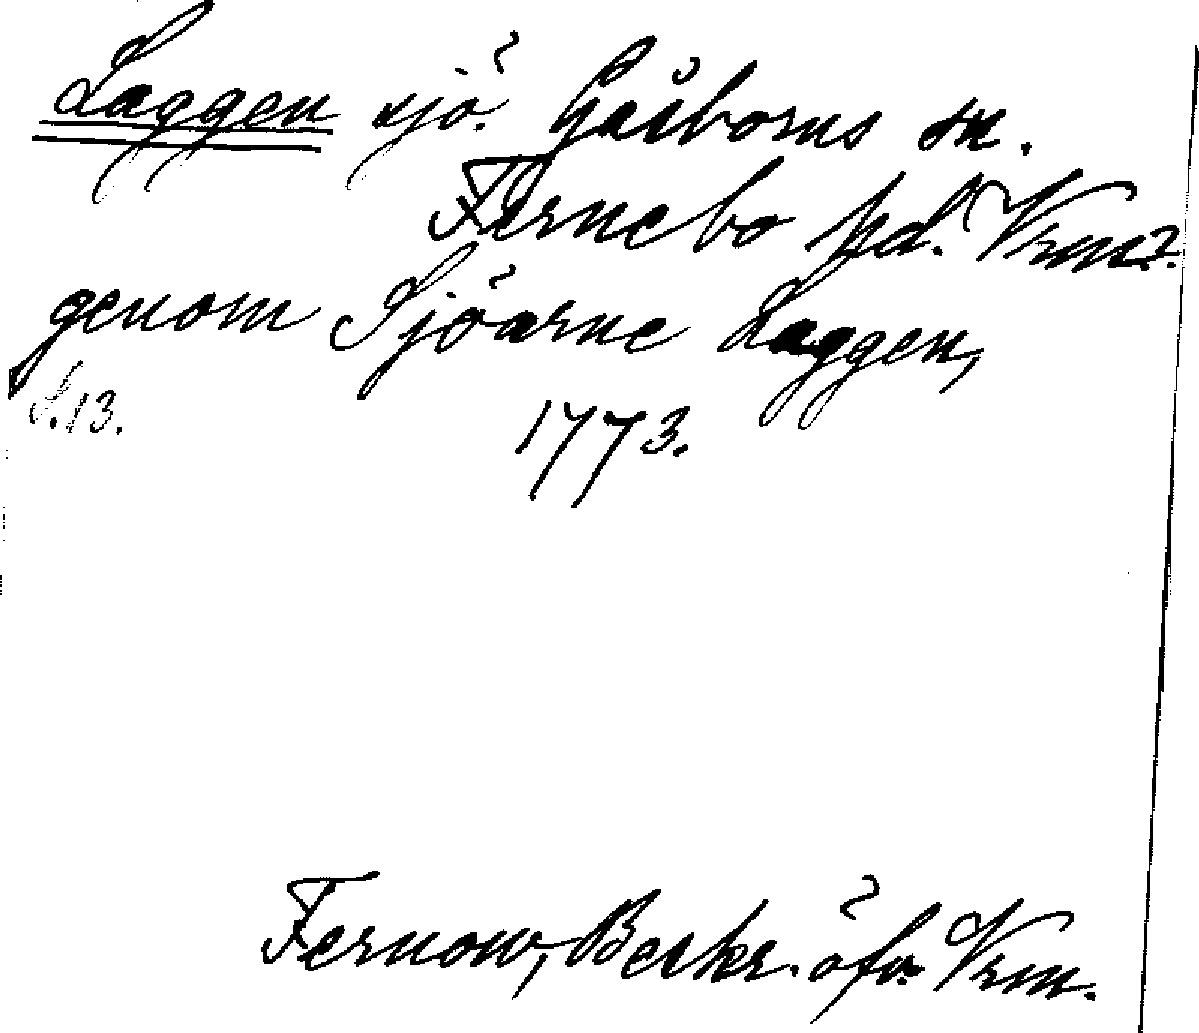 Laggen sjö. Gåsborns sn.
Fernebo hd. Vrml.
genom Sjöarne Laggen,
S. 13.
1773.
Fernow, Beskr. öfv. Vrm.